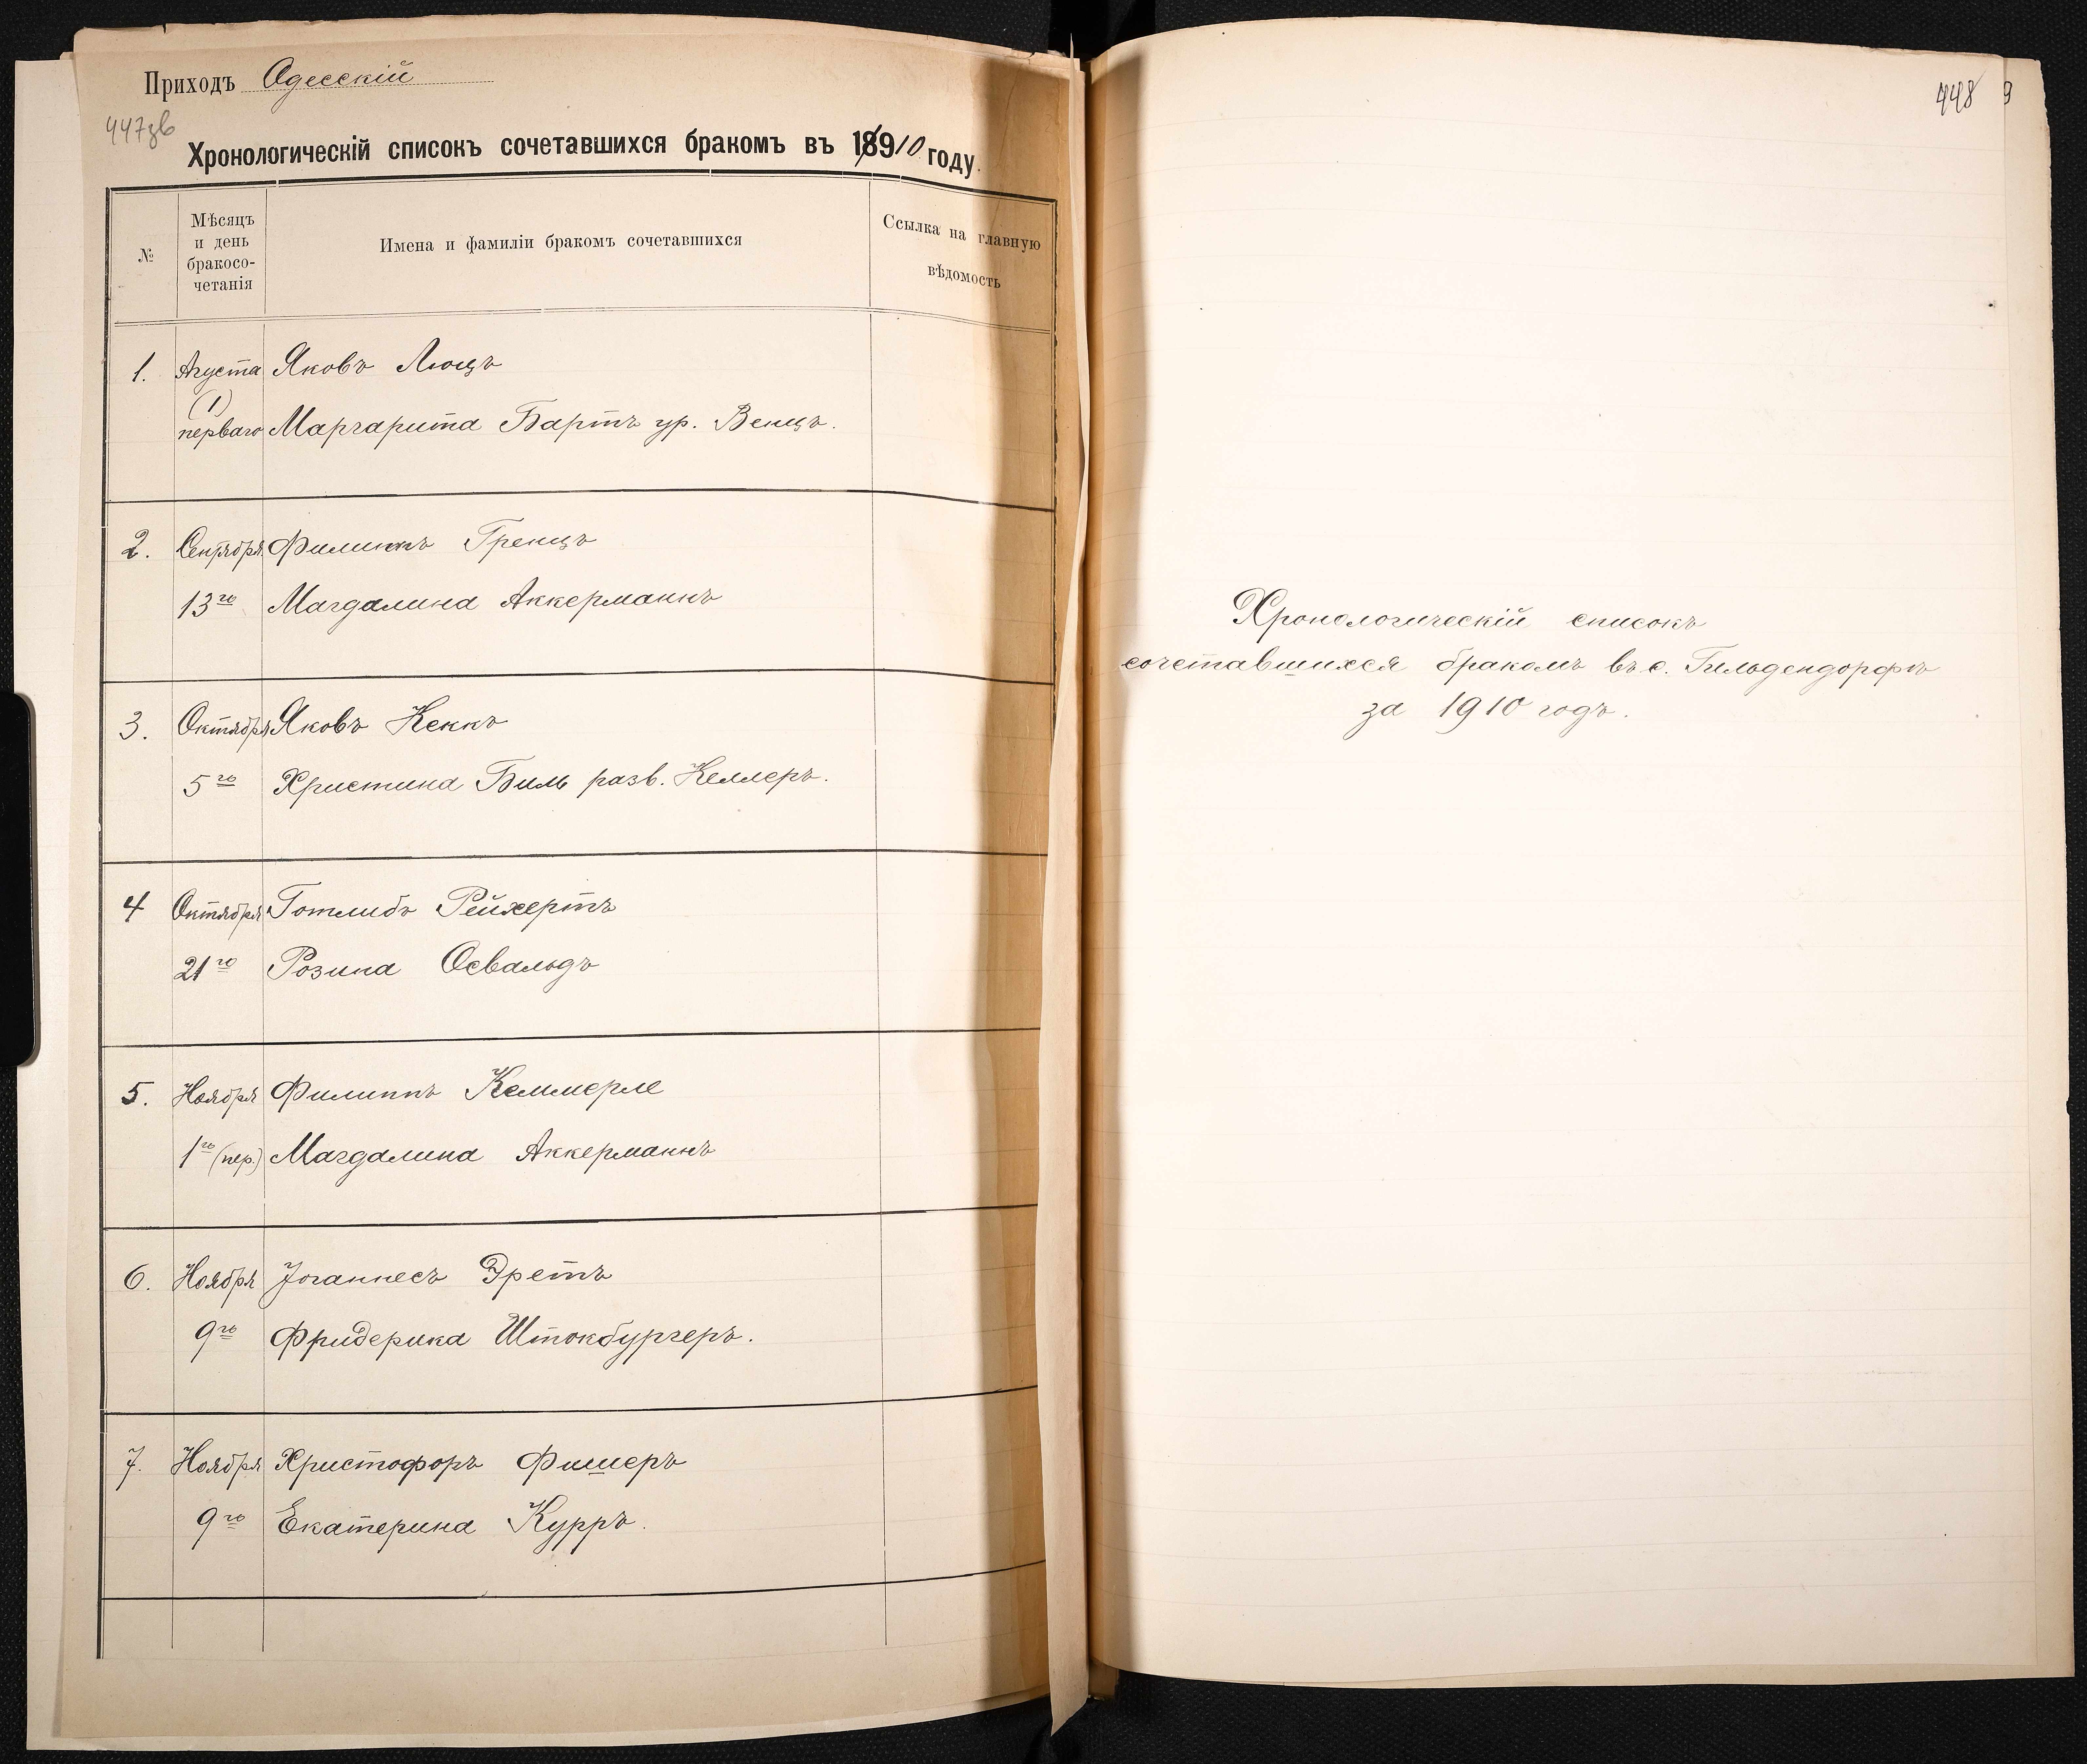 Приходъ Одесскій
447зв
Хронологическій списокъ сочетавшихся бракомъ въ 18910 году.
№
Мѣсяцъ
и день
бракосо-
четанія
Имена и фамиліи бракомъ сочетавшихся
Ссылка на главную
вѣдомость
1. Августа Яковъ Люцъ
(1)
перваго Маргарита Бартъ ур. Венцъ.
2. Сентября Филиппъ Гренцъ
13го Магдалина Аккерманнъ
3. Октября Яковъ Кеккъ
5го Христина Биль разв. Келлеръ.
4 Октября Готлибъ Рейхертъ
21го Розина Освальдъ
5. Ноября Филиппъ Кеммерле
1го (пер.) Магдалина Аккерманнъ
6. Ноября Іоганнесъ Эретъ
9го Фридерика Штокбургеръ.
7. Ноября Христофоръ Фишеръ
9го Екатерина Курръ.
448
9
Хронологическій списокъ
сочетавшихся бракомъ въ с. Гильдендорфъ
за 1910 годъ.